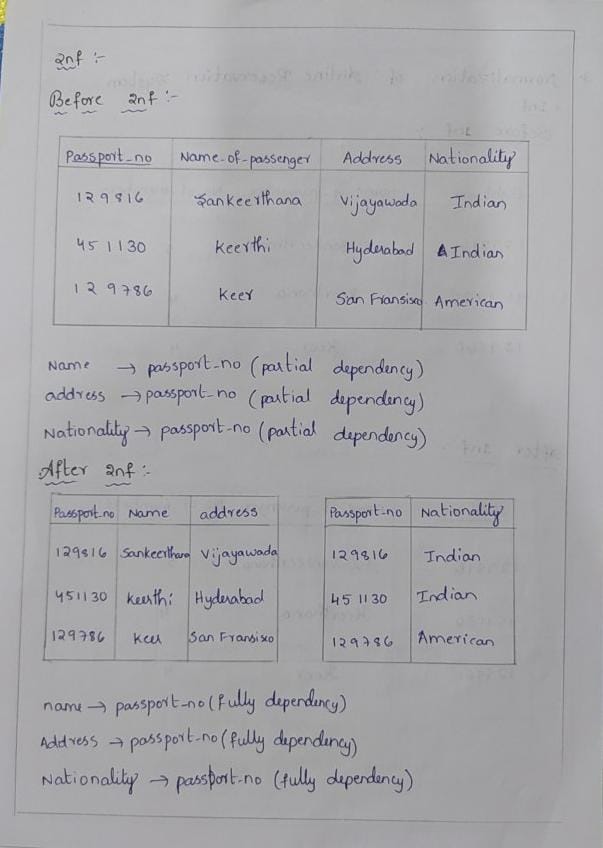 2nf :-
Before 2nf :-
Passport-no Name-of-passenger Address Nationality
129816 Sankeerthana Vijayawada Indian
451130 Keerthi Hyderabad Indian
129786 Keer San Fransisco American
Name → passport-no (partial dependency)
address → passport-no (partial dependency)
Nationality → passport-no (partial dependency)
After 2nf :-
Passport-no Name address Passport-no Nationality
129816 Sankeerthana Vijayawada 129816 Indian
451130 Keerthi Hyderabad 451130 Indian
129786 Keer San Fransisco 129786 American
name → passport-no (fully dependency)
Address → passport-no (fully dependency)
Nationality → passport-no (fully dependency)